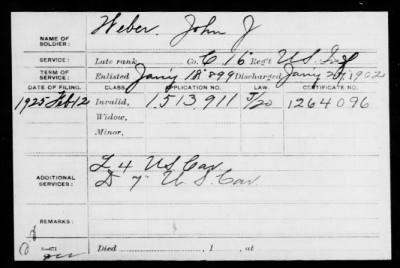 NAME OF SOLDIER: Weber, John J
SERVICE: Late rank, Co. C 16 Reg't U.S. Inf
TERM OF SERVICE: Enlisted Jan'y 18" 899 Discharged Jan'y 1902
DATE OF FILING. CLASS. APPLICATION NO. LAW. CERTIFICATE NO.
1925 Feb 12 Invalid, 1513911 5/20 1264096
Widow,
Minor,
ADDITIONAL SERVICES: L 4 U.S. Cav.
D 7" U.S. Cav.
REMARKS:
Died , 1 , at